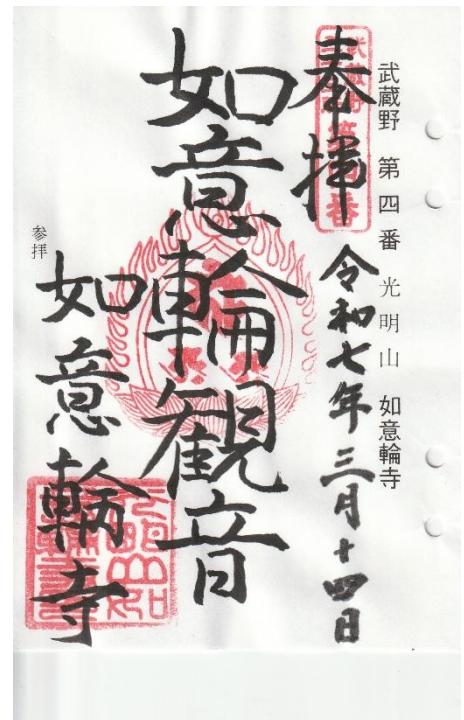 武蔵野 第四番 光明山 如意輪寺
奉拝
武蔵野第四番
令和七年三月十四日
如意輪観音
参拝
如意輪寺